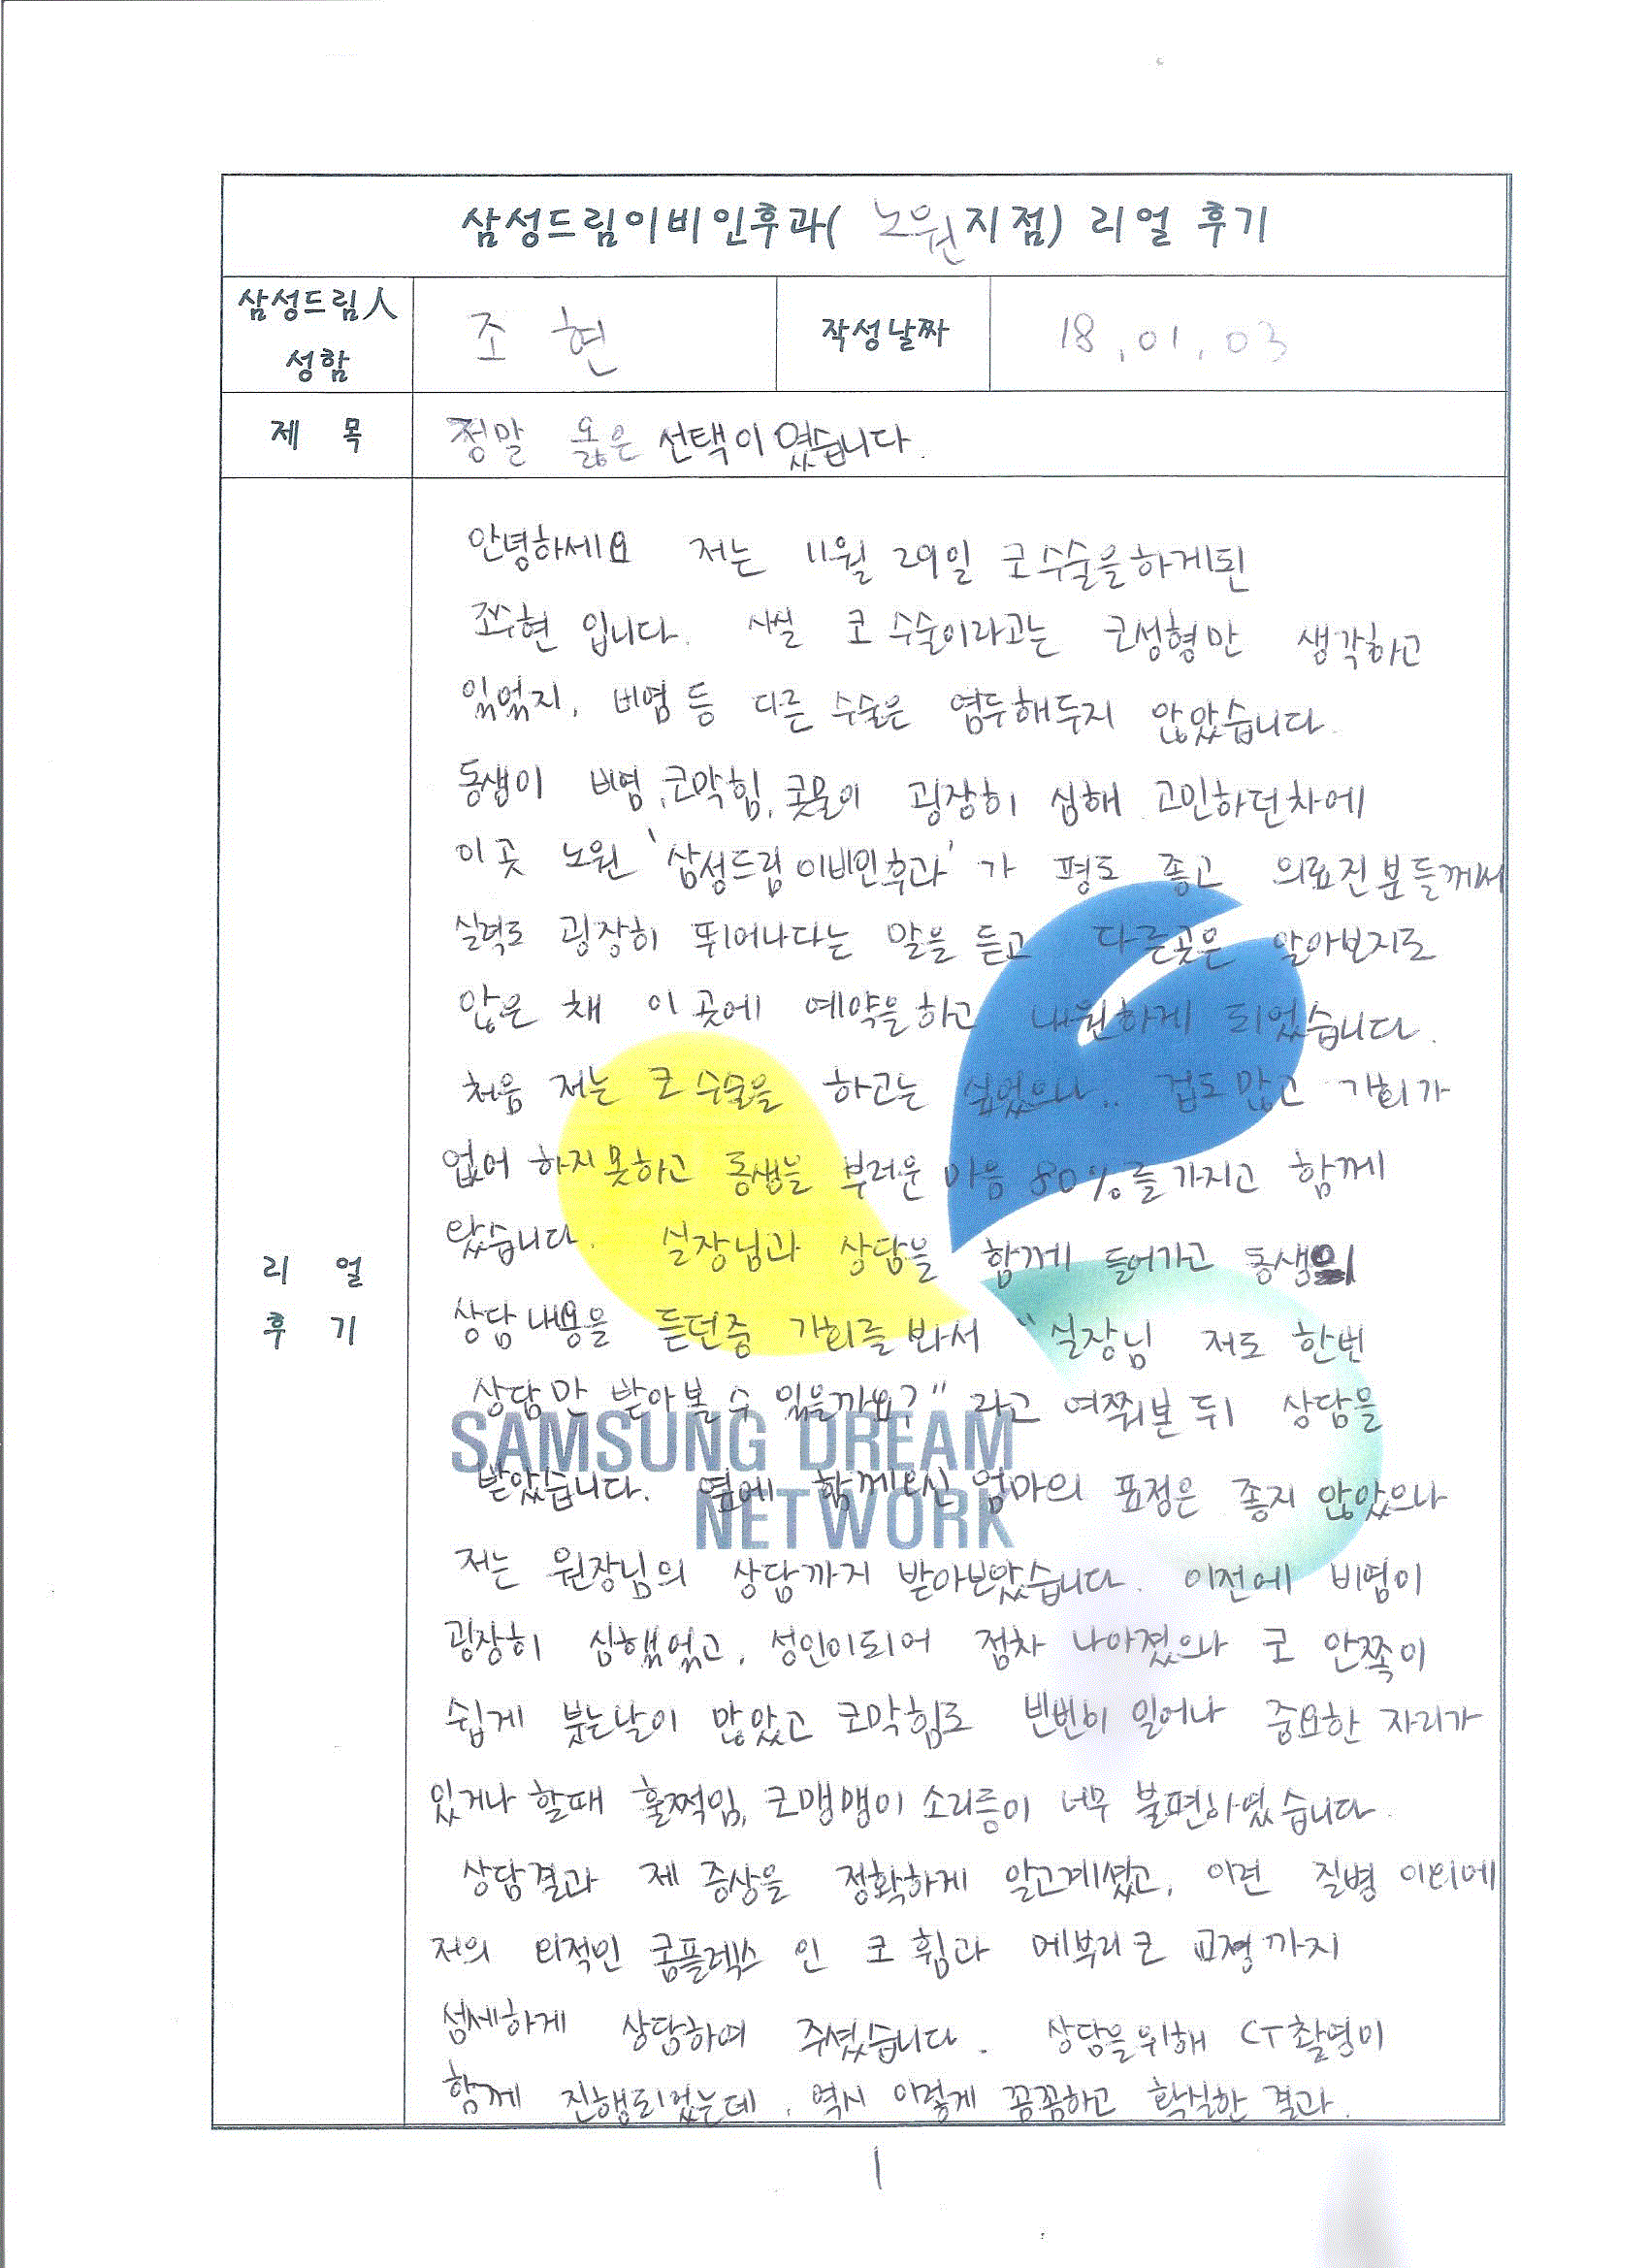 삼성드림이비인후과( 노원지점) 리얼 후기
삼성드림人
성함
조 현
작성날짜
18.01.03
제 목
정말 옳은 선택이였습니다.
안녕하세요 저는 11월 29일 코수술을하게된
조수현 입니다. 사실 코 수술이라고는 코성형만 생각하고
있었지, 비염 등 다른 수술은 염두해두지 않았습니다.
동생이 비염,코막힘,콧물이 굉장히 심해 고민하던차에
이곳 노원 '삼성드림이비인후과'가 평도 좋고 의료진분들께서
실력도 굉장히 뛰어나다는 말을 듣고 다른곳은 알아보지도
않은 채 이 곳에 예약을하고 내원하게 되었습니다.
처음 저는 코 수술을 하고는 싶었으나.. 겁도많고 기회가
없어 하지못하고 동생을 부러운 마음 80%를 가지고 함께
왔습니다. 실장님과 상담을 함께 들어가고 동생의
상담내용을 듣던중 기회를 봐서 "실장님 저도 한번
상담만 받아볼 수 있을까요?" 라고 여쭤본 뒤 상담을
받았습니다. 옆에 함께오신 엄마의 표정은 좋지 않았으나
저는 원장님의 상담까지 받아보았습니다. 이전에 비염이
굉장히 심했었고, 성인이되어 점차 나아졌으나 코 안쪽이
쉽게 붓는날이 많았고 코막힘도 빈번히 일어나 중요한 자리가
있거나 할때 훌쩍임, 코맹맹이 소리등이 너무 불편하였습니다.
상담결과 제 증상을 정확하게 알고계셨고, 이런 질병 이외에
저의 외적인 콤플렉스 인 코 휨과 메부리코 교정까지
섬세하게 상담하여 주셨습니다. 상담을위해 CT촬영이
함께 진행되었는데, 역시 이렇게 꼼꼼하고 확실한 결과.
리 얼
후 기
SAMSUNG DREAM
NETWORK
1